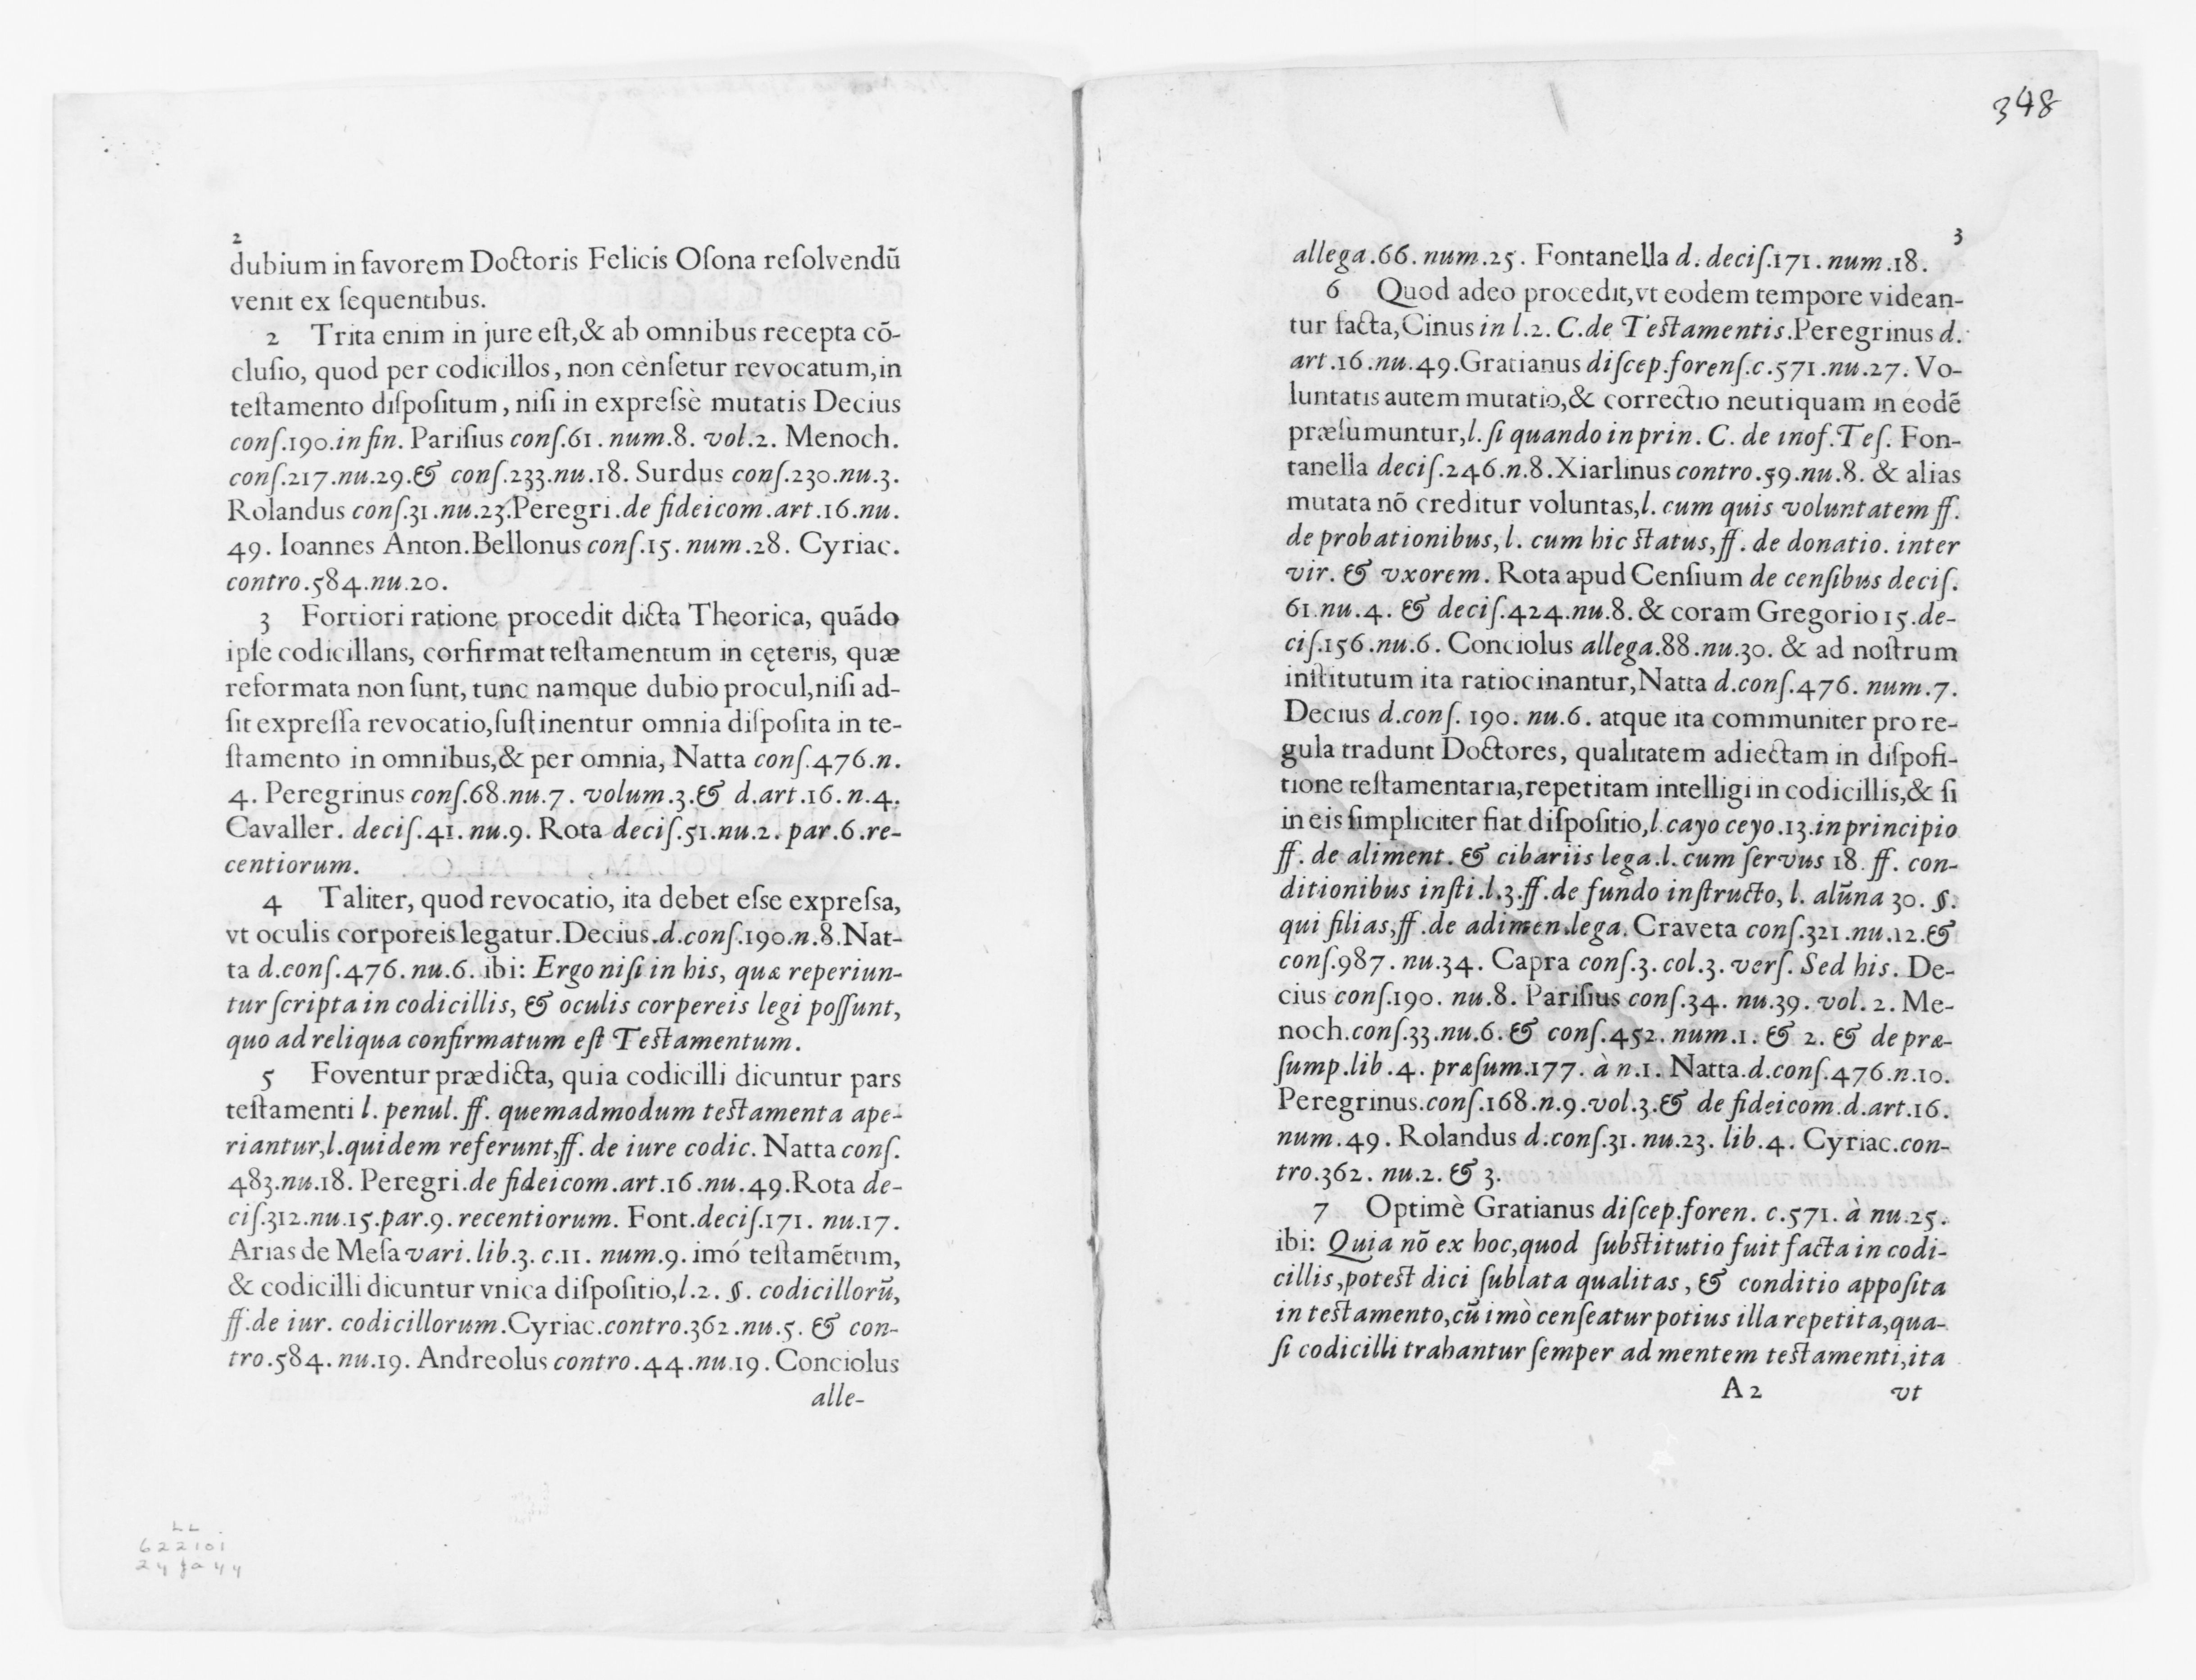 2
dubium in favorem Doctoris Felicis Oſona reſolvendũ
venit ex ſequentibus.
2 Trita enim in jure eſt,& ab omnibus recepta cõ-
cluſio, quod per codicillos, non cènſetur revocatum,in
teſtamento diſpoſitum, niſi in expreſsè mutatis Decius
conſ.190.in fin. Pariſius conſ.61. num.8. vol.2. Menoch.
conſ.217.nu.29.& conſ.233.nu.18. Surdus conſ.230.nu.3.
Rolandus conſ.31.nu.23.Peregri.de fideicom.art.16.nu.
49. Ioannes Anton.Bellonus conſ.15.num.28. Cyriac.
contro.584.nu.20.
3 Fortiori ratione procedit dicta Theorica, quãdo
ipſe codicillans, corfirmat teſtamentum in cęteris, quæ
reformata non ſunt, tunc namque dubio procul,niſi ad-
ſit expreſſa revocatio,ſuſtinentur omnia diſpoſita in te-
ſtamento in omnibus,& per omnia, Natta conſ.476.n.
4. Peregrinus conſ.68.nu.7. volum.3.& d.art.16.n.4.
Cavaller. deciſ.41.nu.9. Rota deciſ.51.nu.2.par.6.re-
centiorum.
4 Taliter, quod revocatio, ita debet eſse expreſsa,
vt oculis corporeis legatur.Decius.d.conſ.190.n.8.Nat-
ta d.conſ.476.nu.6. ibi: Ergo niſi in his, quæ reperiun-
tur ſcripta in codicillis, & oculis corpereis legi poſſunt,
quo ad reliqua confirmatum eſt Teſtamentum.
5 Foventur prædicta, quia codicilli dicuntur pars
teſtamenti l. penul. ff. quemadmodum teſtamenta ape-
riantur,l.quidem referunt,ff. de iure codic. Natta conſ.
483.nu.18. Peregri.de fideicom.art.16.nu.49.Rota de-
ciſ.312.nu.15.par.9.recentiorum. Font.deciſ.171. nu.17.
Arias de Meſa vari.lib.3. c.11. num.9. imó teſtamẽtum,
& codicilli dicuntur vnica diſpoſitio,l.2. §. codicillorũ,
ff.de iur. codicillorum.Cyriac.contro.362.nu.5. & con-
tro.584.nu.19. Andreolus contro.44.nu.19. Conciolus
alle-
LL
622101
24 Ja 44
348
3
allega.66. num.25. Fontanella d. deciſ.171. num.18.
6 Quod adeo procedit,vt eodem tempore videan-
tur facta,Cinus in l.2. C.de Teſtamentis.Peregrinus d.
art.16.nu.49.Gratianus diſcep.forenſ.c.571.nu.27. Vo-
luntatis autem mutatio,& correctio neutiquam in eodẽ
præſumuntur,l.ſi quando in prin. C. de inof.Teſ. Fon-
tanella deciſ.246.n.8.Xiarlinus contro.59.nu.8. & alias
mutata nõ creditur voluntas,l. cum quis voluntatem ff.
de probationibus, l. cum hic ſtatus, ff. de donatio. inter
vir. & vxorem. Rota apud Cenſium de cenſibus deciſ.
61.nu.4. & deciſ.424.nu.8.& coram Gregorio 15.de-
ciſ.156.nu.6. Conciolus allega.88.nu.30. & ad noſtrum
inſtitutum ita ratiocinantur,Natta d.conſ.476. num.7.
Decius d.conſ. 190. nu.6. atque ita communiter pro re-
gula tradunt Doctores, qualitatem adiectam in diſpoſi-
tione teſtamentaria,repetitam intelligi in codicillis,& ſi
in eis ſimpliciter fiat diſpoſitio,l.cayo ceyo.13.in principio
ff. de aliment. & cibariis lega.l.cum ſervus 18. ff. con-
ditionibus inſti.l.3.ff.de fundo inſtructo, l. alũna 30. §.
qui filias,ff.de adimen.lega. Craveta conſ.321.nu.12.&
conſ.987.nu.34. Capra conſ.3. col.3. verſ. Sed his. De-
cius conſ.190. nu.8. Pariſius conſ.34. nu.39. vol. 2. Me-
noch.conſ.33.nu.6.& conſ.452. num.1. & 2. & de præ-
ſump.lib.4. præſum.177. à n.1. Natta.d.conſ.476.n.10.
Peregrinus.conſ.168.n.9.vol.3.& de fideicom.d.art.16.
num.49. Rolandus d.conſ.31.nu.23. lib.4. Cyriac.con-
tro.362. nu.2. & 3.
7 Optimè Gratianus diſcep.foren. c.571. à nu.25.
ibi: Quia nõ ex hoc,quod ſubſtitutio fuit facta in codi-
cillis,poteſt dici ſublata qualitas, & conditio appoſita
in teſtamento,cũ imò cenſeatur potius illa repetita,qua-
ſi codicilli trahantur ſemper ad mentem teſtamenti,ita
A 2 vt